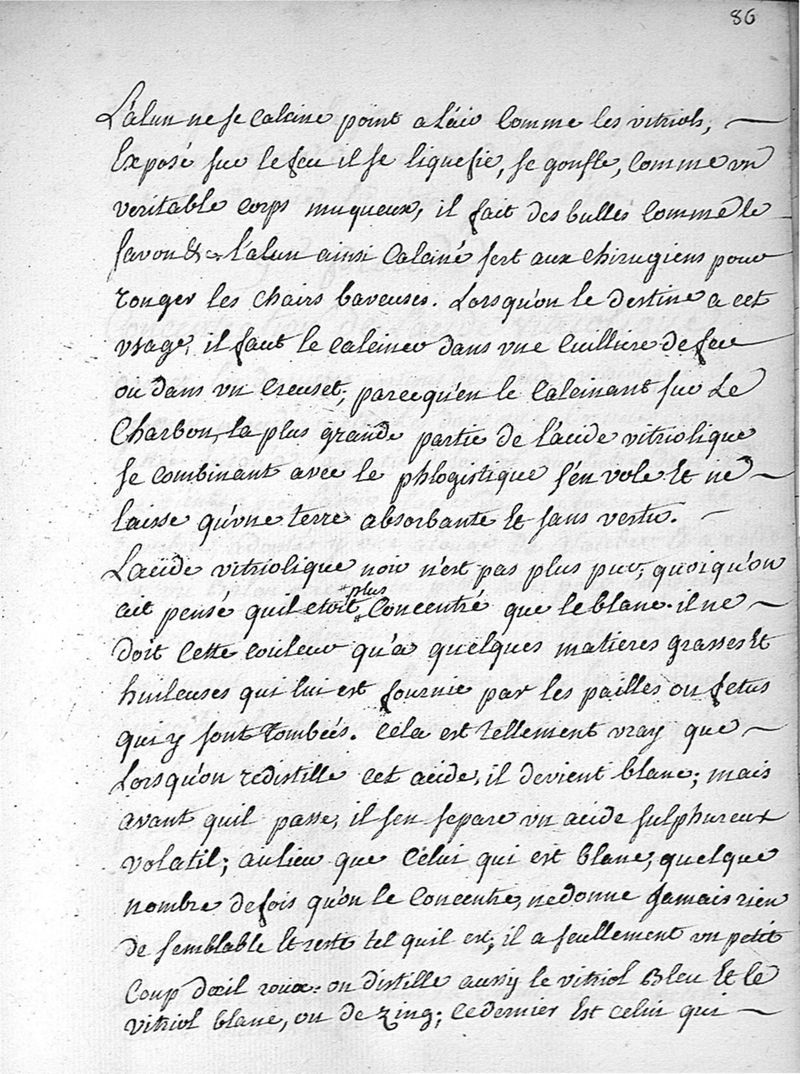 86
L'alun ne se calcine point a l'air comme les vitriols, —
Exposé sur le feu il se liquefie, se gonfle, comme un
veritable corps muqueux, il fait des bulles comme le
savon &c. l'alun ainsi calciné sert aux chirugiens pour
ronger les chairs baveuses. Lorsqu'on le destine a cet
usage, il faut le calciner dans une cuilliere de feu
ou dans un creuset, parcequ'en le calcinant sur Le
Charbon, la plus grande partie de l'acide vitriolique
se combinant avec le phlogistique s'en vole Et ne —
laisse qu'une terre absorbante Et sans vertu. —
L'acide vitriolique noir n'est pas plus pur, quoiqu'on
plus
ait pensé quil etoit concentré que le blanc. il ne —
doit cette couleur qu'a quelques matieres grasses Et
huileuses qui lui est fournie par les pailles ou fetus
qui y sont tombées. Cela est tellement vray que —
Lorsqu'on redistille cet acide, il devient blanc; mais
avant quil passe, il sen separe un acide sulphureux
volatil; aulieu que Celui qui est blanc, quelque
nombre de fois qu'on le concentre, ne donne Jamais rien
de semblable Et reste tel quil est, il a seullement un petit
Coup d'œil roux. on distille aussy le vitriol Bleu Et le
vitriol blanc, ou de zing; ce dernier Est celui qui —